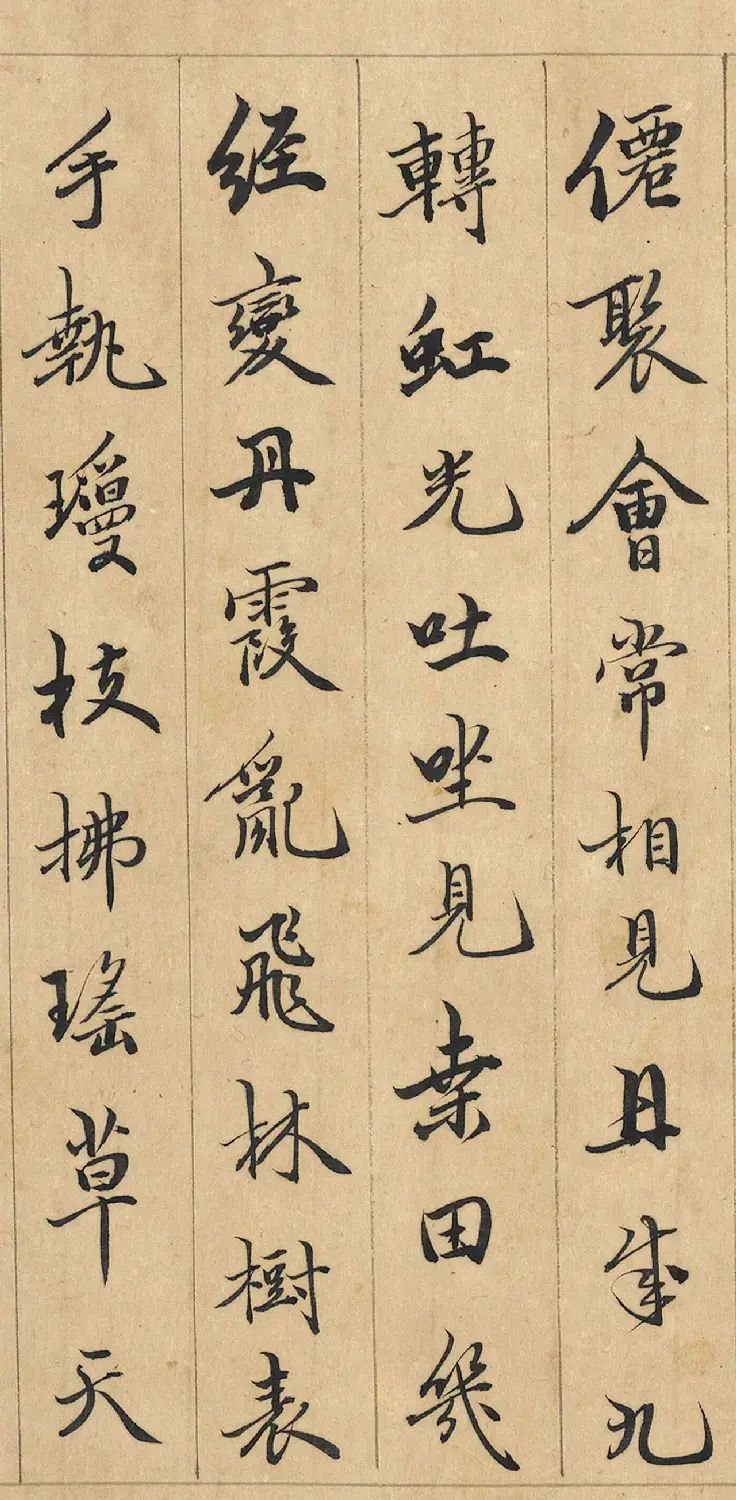 僊聚會常相見丹成九
轉虹光吐坐見桑田幾
經變丹霞亂飛林樹表
手執瓊枝拂瑤草天